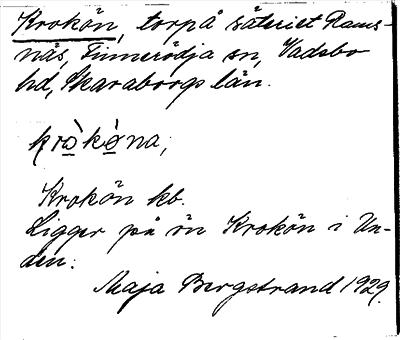 Krokön, torp å säteriet Rams-
näs, Finnerödja sn, Vadsbo
hd, Skaraborgs län.
krò̱kò̱na;
Krokön kb.
Ligger på ön Krokön i Un-
den.
Maja Bergstrand 1929.